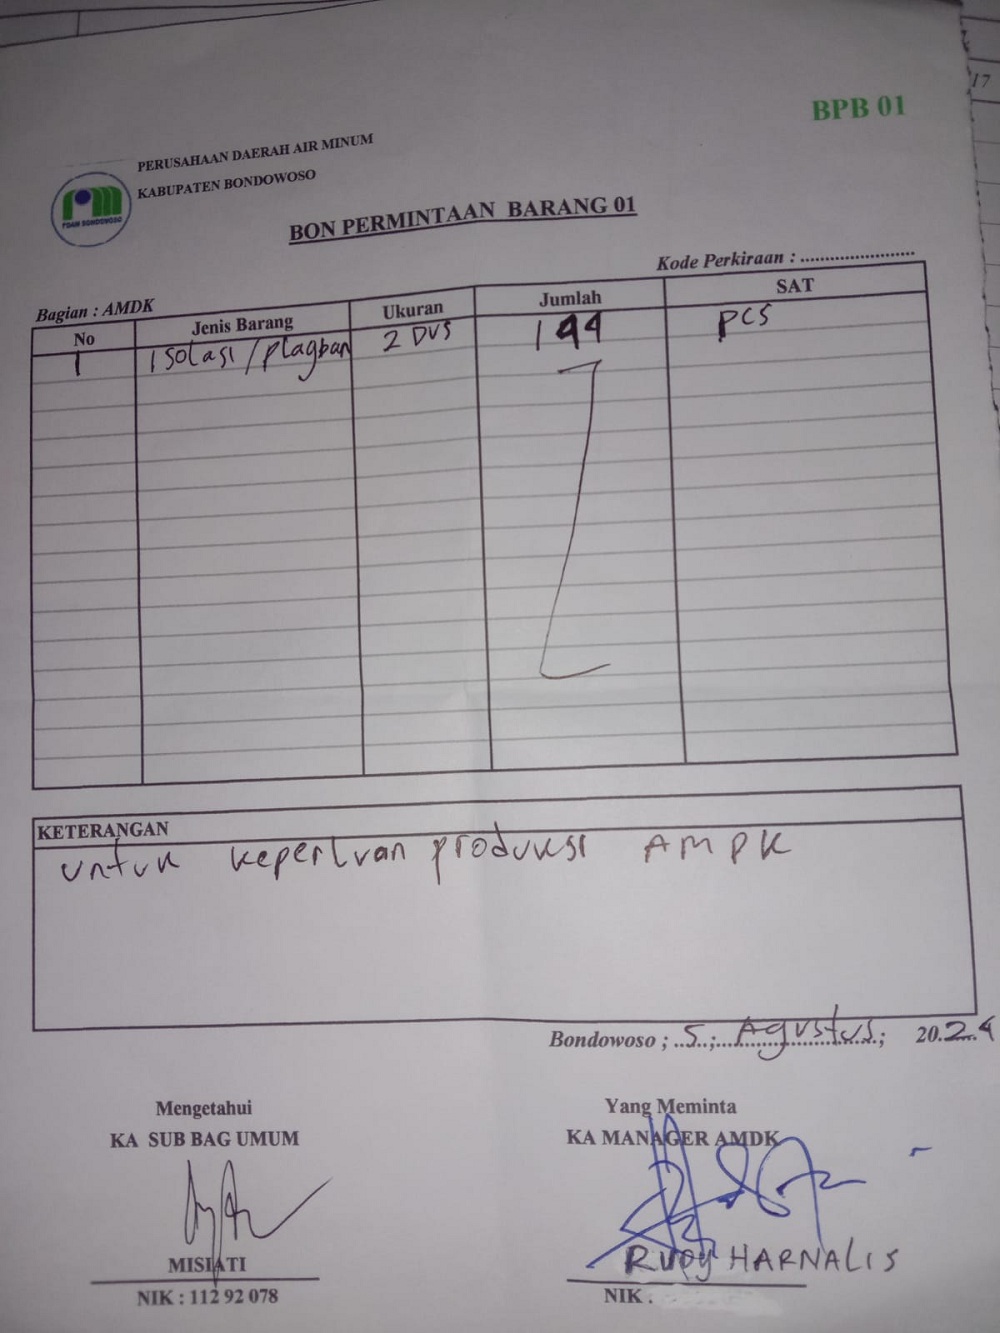 17
BPB 01
PERUSAHAAN DAERAH AIR MINUM
KABUPATEN BONDOWOSO
PDAM BONDOWOSO
BON PERMINTAAN BARANG 01
Kode Perkiraan : ........................
Bagian : AMDK
No Jenis Barang Ukuran Jumlah SAT
1 Isolasi/plagban 2 DUS 144 PCS
KETERANGAN
untuk keperluan produksi AMPK
Bondowoso ; ..5..;....Agustus....; 20.24
Mengetahui Yang Meminta
KA SUB BAG UMUM KA MANAGER AMDK
MISIATI RUDY HARNALIS
NIK : 112 92 078 NIK .